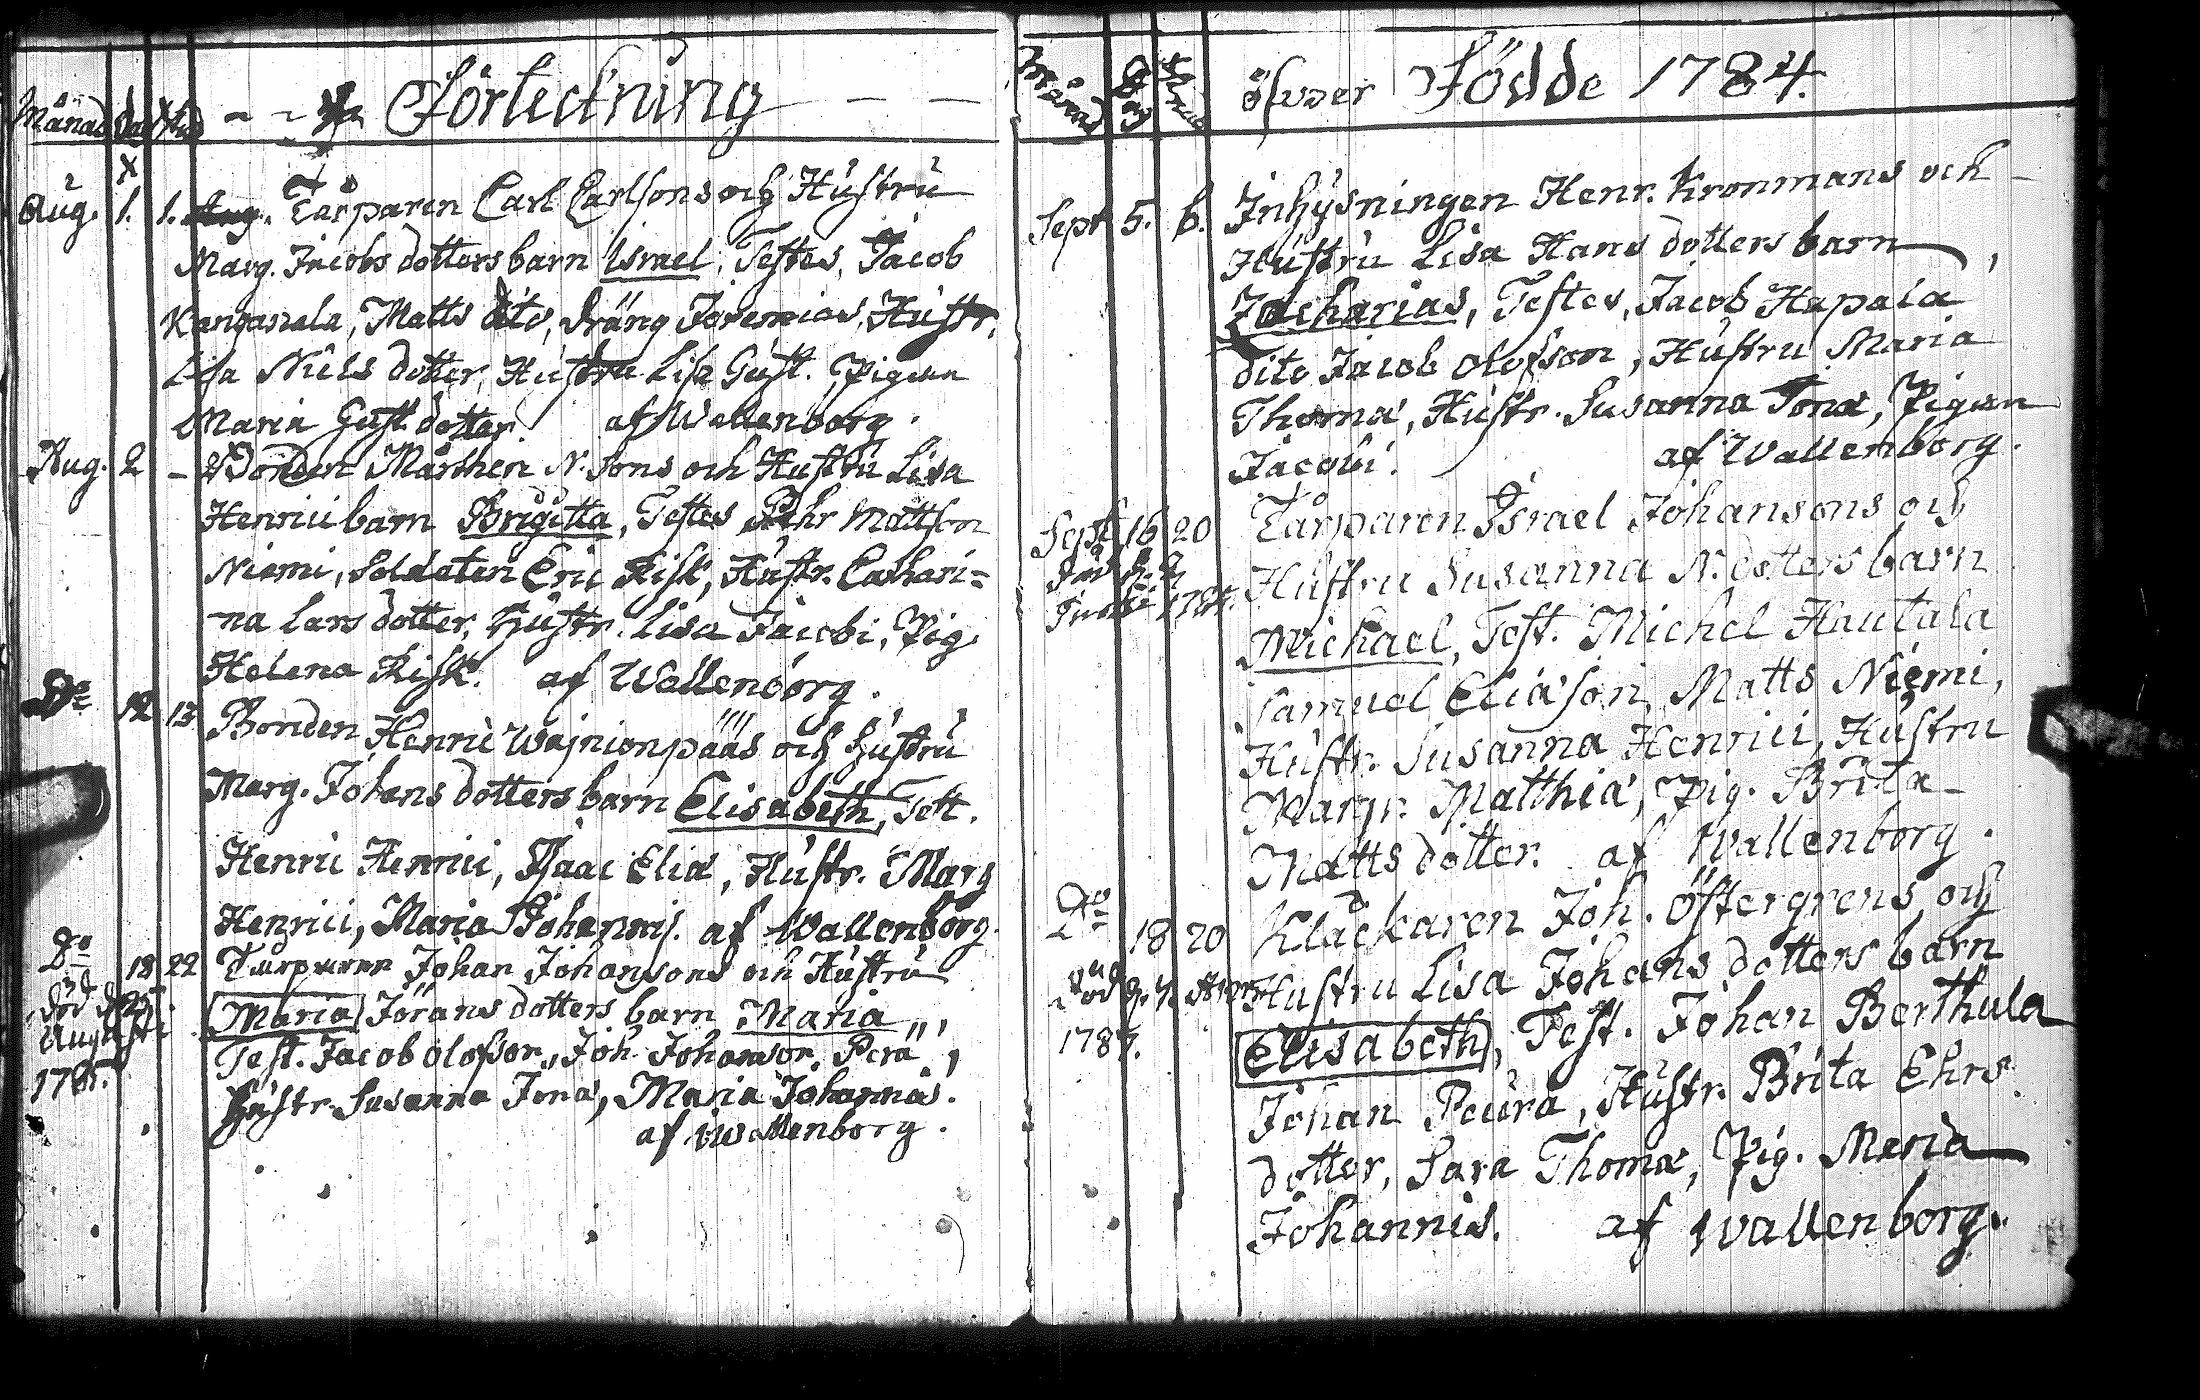 Månad Dag Christ. Förteckning
Aug. 1. 1. Torparen Carl Carlsons och Hustru
Marg. Jacobs dotters barn Israel, Testes, Jacob
Kangasala, Matts dito, dräng Jeremias, Hustr.
Lisa Niels dotter, Hustru Lisa Gust. Pigan
Maria Gust dotter. af Wallenborg.
Aug. 2 – Bonden Mårthen N. Sons och Hustru Lisa
Henrici barn Brigitta, Testes Pehr Mattson
Niemi, Soldaten Eric Kisk, Hustr. Cathari=
na Lars dotter, Hustr. Lisa Jacobi, Pig.
Helena Kisk. af Wallenborg.
Do 12 13 Bonden Henric Wajnionpääs och hustru
Marg. Johans dotters barn Elisabeth, Test.
Henric Henrici, Isaac Eliæ, Hustr. Marg
Henrici, Maria Johannis. af Wallenborg.
Do 18 22 Torparen Johan Johansons och Hustru
död d. 25. Maria Jörans dotters barn Maria,
Augusti Test. Jacob Olofson, Joh. Johanson Perä,
1785. Hustr. Susanna Jonæ, Maria Johannis.
af Wallenborg.
Månad Dag öfwer Födde 1784.
Sept 5. 6. Inhysningen Henr. Kronmans och
Hustru Lisa Hans dotters barn,
Zacharias, Testes, Jacob Hapala
dito Jacob Olofson, Hustru Maria
Thomæ, Hustr. Susanna Jonæ, Pigan
Jacobi. af Wallenborg.
Sept 16 20 Torparen Israel Johansons och
död d. Hustru Susanna N. dotters barn
Michael, Test. Michel Hautala
Samuel Eliæson, Matts Niemi,
Hustr. Susanna Henrici, Hustru
Margr. Matthiæ, Pig. Brita
Matts dotter. af Wallenborg.
Do 18 20 Kläckaren Joh. Östergrens och
död Hustru Lisa Johans dotters barn
Elisabeth, Test. Johan Berthula
Johan Peura, Hustr. Brita Ehrs
dotter, Sara Thomæ, Pig. Maria
Johannis. af Wallenborg.